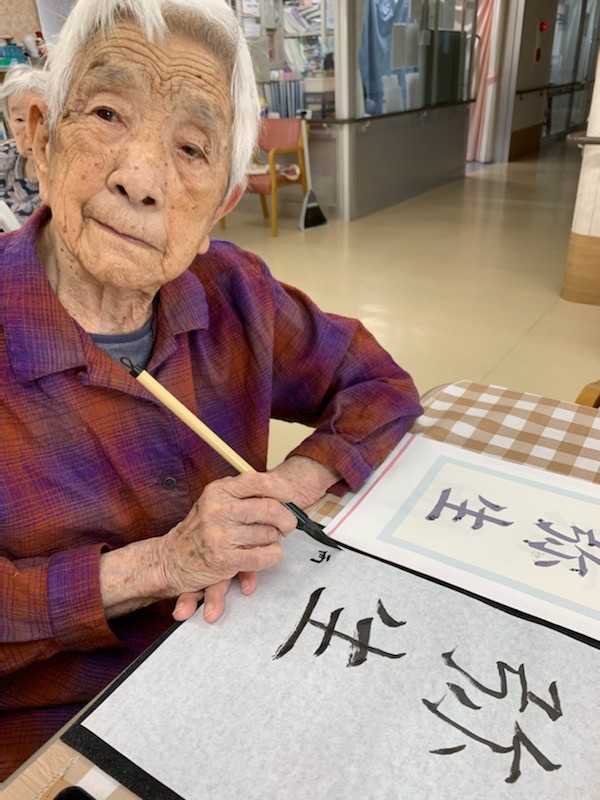 弥生
弥生